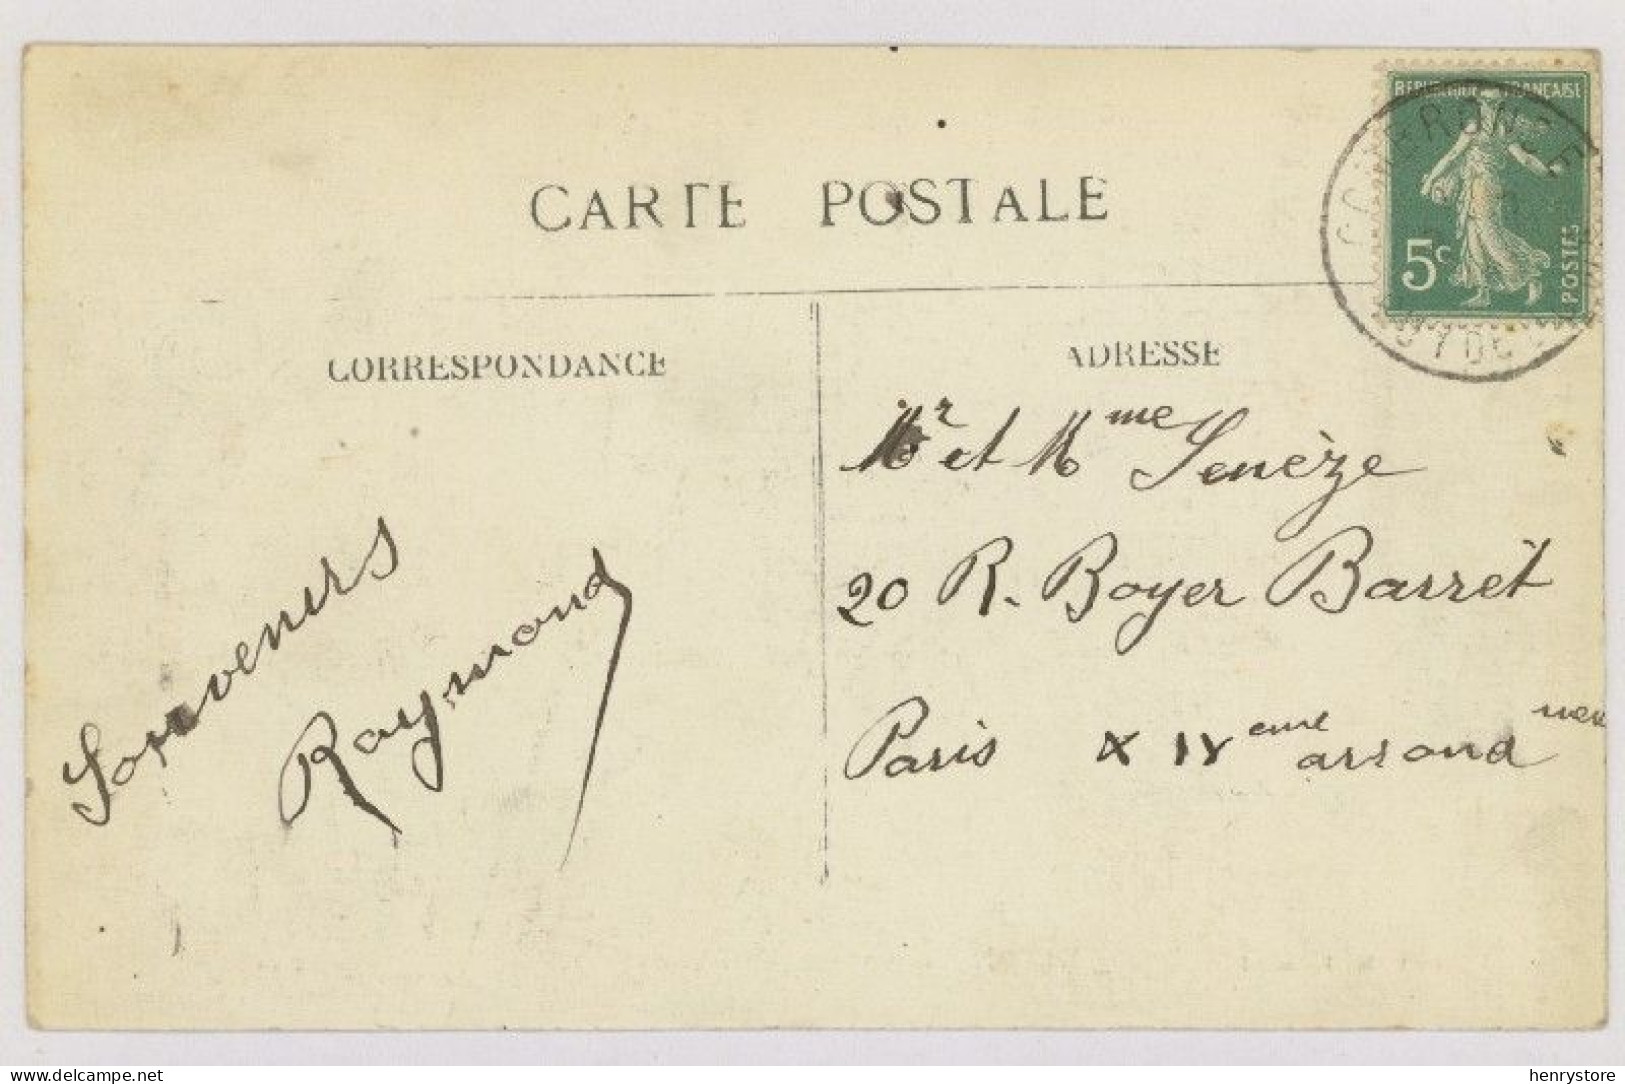 CARTE POSTALE
RÉPUBLIQUE FRANÇAISE
5c
POSTES
CORRESPONDANCE
ADRESSE
Mr et Mme Senèze
20 R. Boyer Barret
Paris XIVeme arrond
Souvenirs
Raymond
www.delcampe.net
henrystore